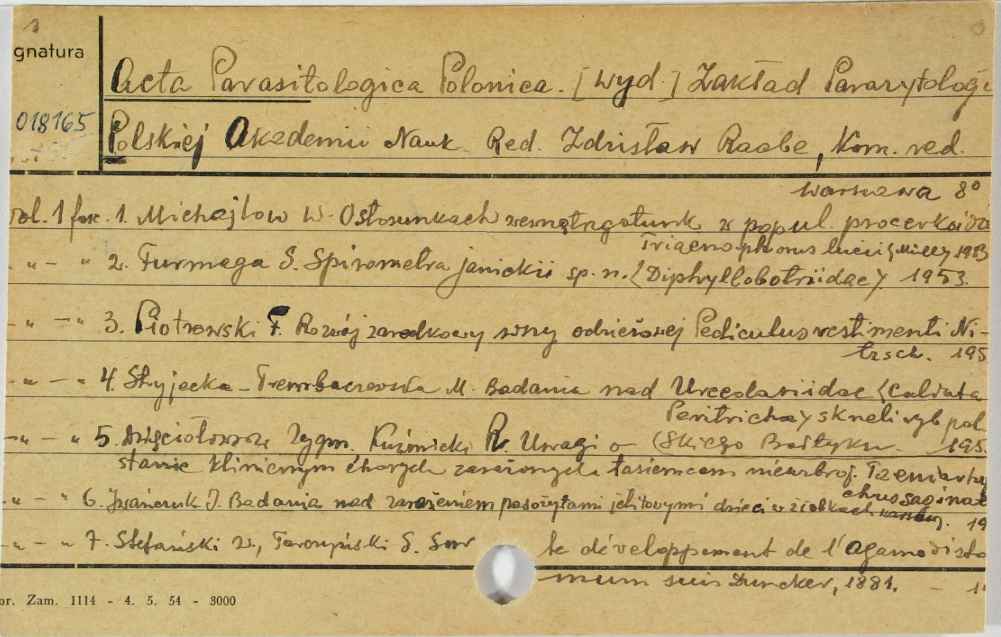 gnatura
018165
Acta Parasitologica Polonica. [wyd.] Zakład Parazytologi
Polskiej Akademii Nauk Red. Zdzisław Raabe, Kom. red.
Warszawa 8°
vol. 1 fasc. 1. Michajłow W. O stosunkach wewnątrzgatunk. w popul. procerkoidów
Triaenophorus lucii (Müll) 1953
- " - " 2. Furmaga S. Spirometra janickii sp. n. (Diphyllobotriidae) 1953.
- " - " 3. Piotrowski F. Rozwój zarodkowy wszy odzieżowej Pediculus vestimenti Ni-
tzsch. 195
- " - " 4. Stryjecka-Trembaczowska M. Badania nad Urceolariidae (Ciliata
Peritricha) skrzeli ryb poł.
- " - " 5. Dzięciołowski Zygm. Kuźmicki R. Uwagi o (skiego Bałtyku. 195
stanie klinicznym chorych zarażonych tasiemcem nieuzbroj. Taeniarhyn
chus saginat
- " - " 6. J. Badania nad zarażeniem pasożytami jelitowymi dzieci w żłobkach 19
- " - " 7. Stefański W., Tarczyński S. Sur le développement de l'agamodisto
mum suis Duncker, 1881. - 1
or. Zam. 1114 - 4. 5. 54 - 3000